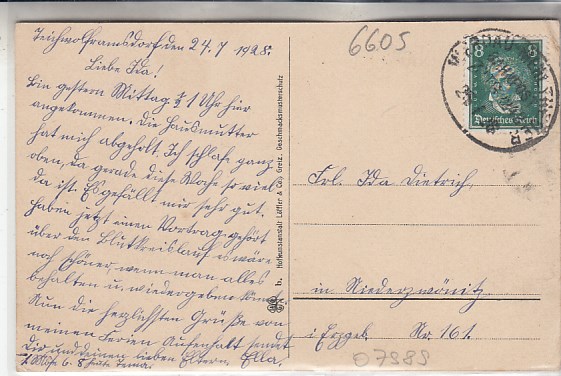 Teichwolframsdorf den 24.7 1928.
Liebe Ida!
Bin gestern Mittag ½ 1 Uhr hier
angekommen. Die Hausmutter
hat mich abgeholt. Ich schlafe ganz
oben, da gerade diese Woche so viel
da ist. Es gefällt mir sehr gut.
Haben jetzt einen Vortrag gehört
über den Blutkreislauf es wäre
noch schöner, wenn man alles
behalten u. wiedergeben könnte.
Nun die herzlichsten Grüße von
meinem Ferien Aufenthalt sendet
Dir und deinen lieben Eltern Ella.
6605
8
8
Deutsches Reich
Frl. Ida Dietrich,
in Niederzwönitz
i Erzgeb. Nr. 161.
07989
h. Hofkunstanstalt Löffler & Co., Greiz. Geschmacksmusterschutz